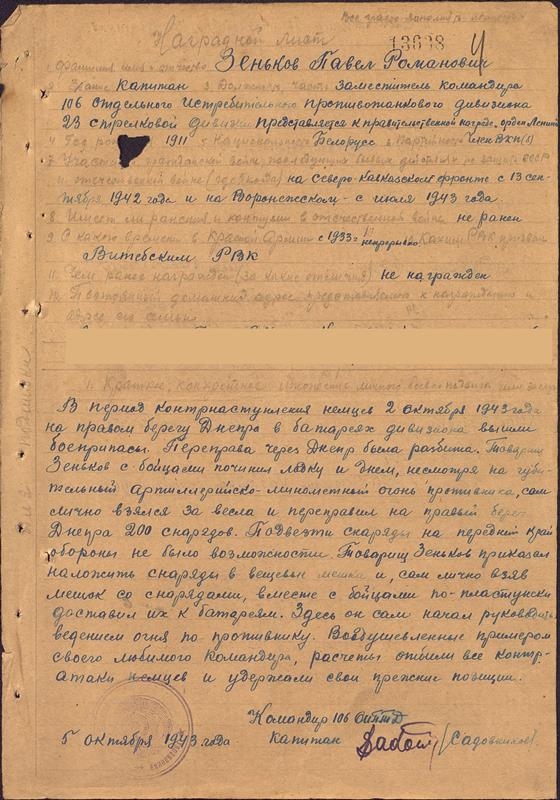 Все графы заполнять
Наградной лист
13698
1. Фамилия имя и отчество Зеньков Павел Романович
2. Звание Капитан 3. Должность, часть заместитель командира
106 Отдельного Истребительного Противотанкового дивизиона
23 стрелковой дивизии Представляется к правительственной награде, орден Ленина
4. Год рож 1911 5. Национальность Белорус 6. Партийность член ВКП(б)
7. Участие в гражданской войне, последующих боевых действиях по защите СССР
и отечественной войне (где, когда) на Северо-Кавказском фронте с 13 сен-
тября 1942 года и на Воронежском - с июля 1943 года.
8. Имеет ли ранения и контузии в отечественной войне не ранен
9. С какого времени в Красной Армии с 1933- непрерывно 10. Каким РВК призван
Витебским РВК
11. Чем ранее награжден (за какие отличия) не награжден
12. Постоянный домашний адрес представляемого к награждению и
адрес его семьи
1. Краткое, конкретное изложение личного боевого подвига или заслуг
В период контрнаступления немцев 2 октября 1943 года
на правом берегу Днепра в батареях дивизиона вышли
боеприпасы. Переправа через Днепр была разбита. Товарищ
Зеньков с бойцами починил лодку и днем, несмотря на губи-
тельный артиллерийско-минометный огонь противника, сам
лично взялся за весла и переправил на правый берег
Днепра 200 снарядов. Подвезти снаряды на передний край
обороны не было возможности. Товарищ Зеньков приказал
наложить снаряды в вещевые мешки и, сам лично взяв
мешок со снарядами, вместе с бойцами по-пластунски
доставил их к батареям. Здесь он сам начал руководить
ведением огня по противнику. Воодушевленные примером
своего любимого командира, расчеты отбили все контр-
атаки немцев и удержали свои прежние позиции.
Командир 106 ОИПТД
5 октября 1943 года капитан (Садовников)